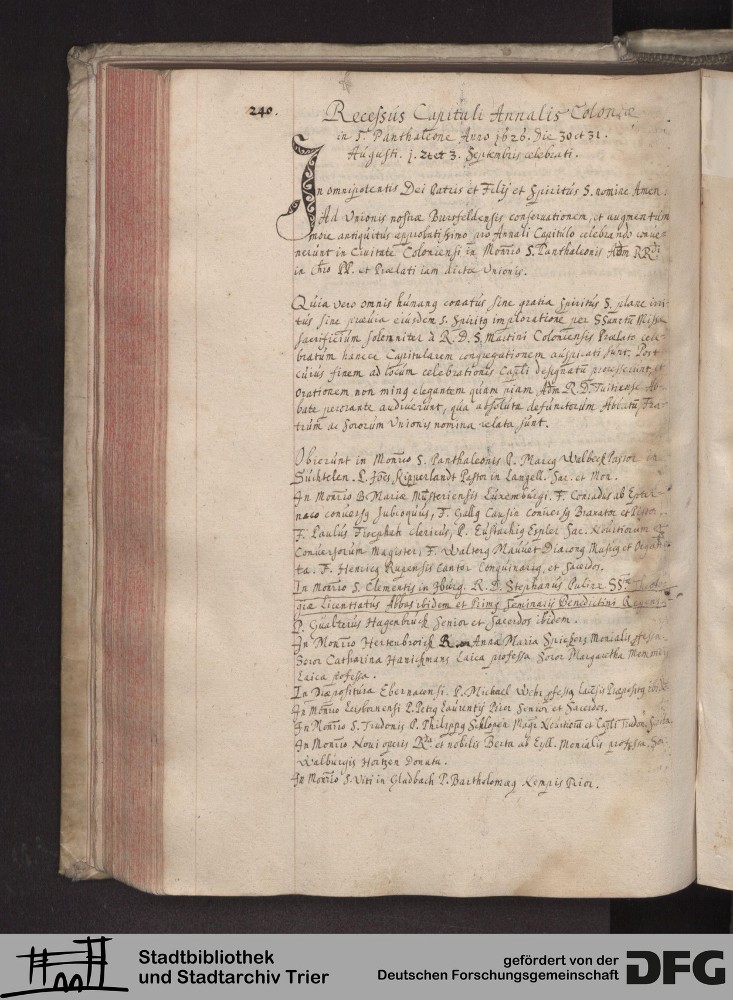 240.
Recessus Capituli Annalis Coloniæ
in S. Panthaleone Anno 1626. Die 30 et 31.
Augusti. 1. 2 et 3. Septembris celebrati.
In omnipotentis Dei Patris et Filij et Spiritus S. nomine Amen.
Ad Unionis nostræ Bursfeldensis conservationem, et augmentum
more antiquitus approbatissimo pro Annali Capitulo celebrando conve=
nerunt in Civitate Coloniensi in Monrio S. Panthaleonis Adm RRdi
in Chro PP. et Prælati iam dictæ Unionis.
Quia vero omnis humanq conatus sine gratia Spiritus S. plane irri
tus sine prævia eiusdem S. Spiritq imploratione per SSanctũ Missæ
sacrificium solemniter à R. D. S. Martini Coloniensis Prælato cele
bratum hancce Capitularem congregationem auspicati sunt. Post
cuius finem ad locum celebrationis Capli designatũ processerunt, et
orationem non minq elegantem quam piam Adm R. D. Tuitiense Ab
bate perorante audiverunt, qua absoluta defunctorum Abbatũ, Fra
trum ac Sororum Unionis nomina relata sunt.
Obierunt in Monrio S. Panthaleonis P. Marcq Walbeck Pastor in
Suchtelen. P. Joes Kipperlandt Pastor in Langell. Sac. et Mon.
In Monrio B. Mariæ Mũsteriensis Luxemburgi. F. Conradus ab
conversq subcoquus, F. Gallq Causin conversq Braxator et Pistor.
F. Paulus Fischer Clericus, P. Eustachiq Espler Sac. Novitiorum et
Conversorum Magister, F. Walterq Mauuet Diaconq Musicq et Organis
ta. F. Henricq Rupensis Cantor Longuinariq, et Sacerdos.
In Monrio S. Clementis in Iburg. R. D. Stephanus SSæ Theolo
giæ Licentiatus Abbas ibidem et Primq Seminarij Benedictini Regens
P. Gualterus Hagenbruck Senior et Sacerdos ibidem.
In Monrio Hertzenbroick Anna Maria Spiekers Monialis pfessa.
Soror Catharina Hanickmans Laica professa Soror Margaretha
Laica pfessa.
In Præpositura Ebernacensi. P. Michael Wehr pfessq Præpositq ibidẽ
In Monrio Leisbornensi P. Petrq Laurentij Prior Senior et Sacerdos.
In Monrio S. Trudonis P. Philippq Schlopen Magr Novitiorũ et Capli Trudon.
In Monrio Novi operis Rda et nobilis Berta ab Eyll. Monialis professa, Soror
Walburgis Hortzen Donata.
In Monrio S. Viti in Gladbach P. Bartholomæq Kempis Prior.
Stadtbibliothek
und Stadtarchiv Trier
gefördert von der
Deutschen Forschungsgemeinschaft
DFG